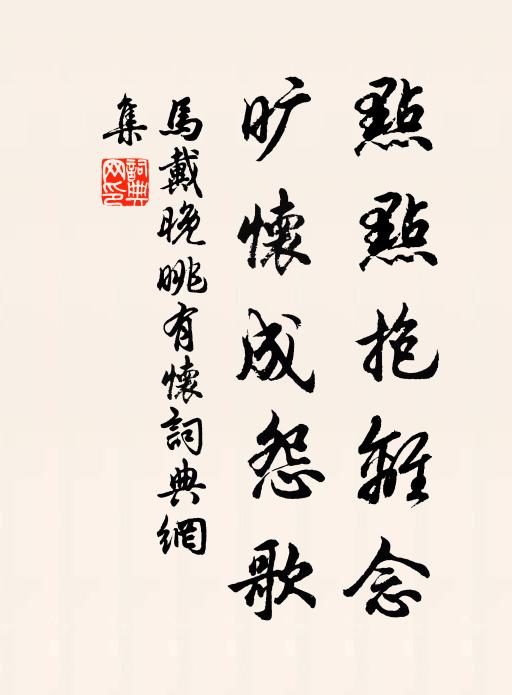 點點抱離念
旷懷成怨歌
馬戴晚眺有懷詞典網
集
詞典
网印